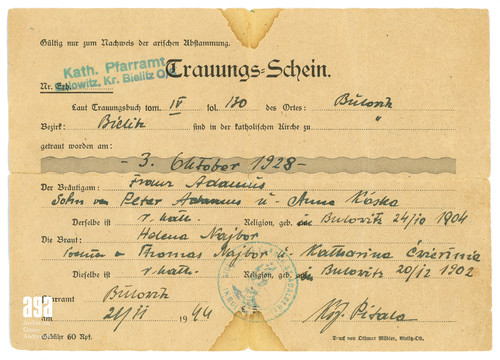 Gültig nur zum Nachweis der arischen Abstammung.
Kath. Pfarramt
Kr. Bielitz O.
Nr. Erh.
Trauungs-Schein.
Laut Trauungsbuch tom. IV fol. 130 des Ortes: Bulowitz
Bezirk: Bielitz sind in der katholischen Kirche zu "
getraut worden am:
- 3. Oktober 1928 -
Der Bräutigam: Franz Adamus
Sohn von Peter Adamus u. Anna Kóska
Derselbe ist r. kath. Religion, geb. in Bulowitz 24/10 1904
Die Braut: Helena Najbor
Thomas Najbor u. Katharina
Dieselbe ist r. kath. Religion, geb. in Bulowitz 20/12 1902
Pfarramt Bulowitz
1944
Gebühr 60 Rpf.
Druck von Othmar
aga